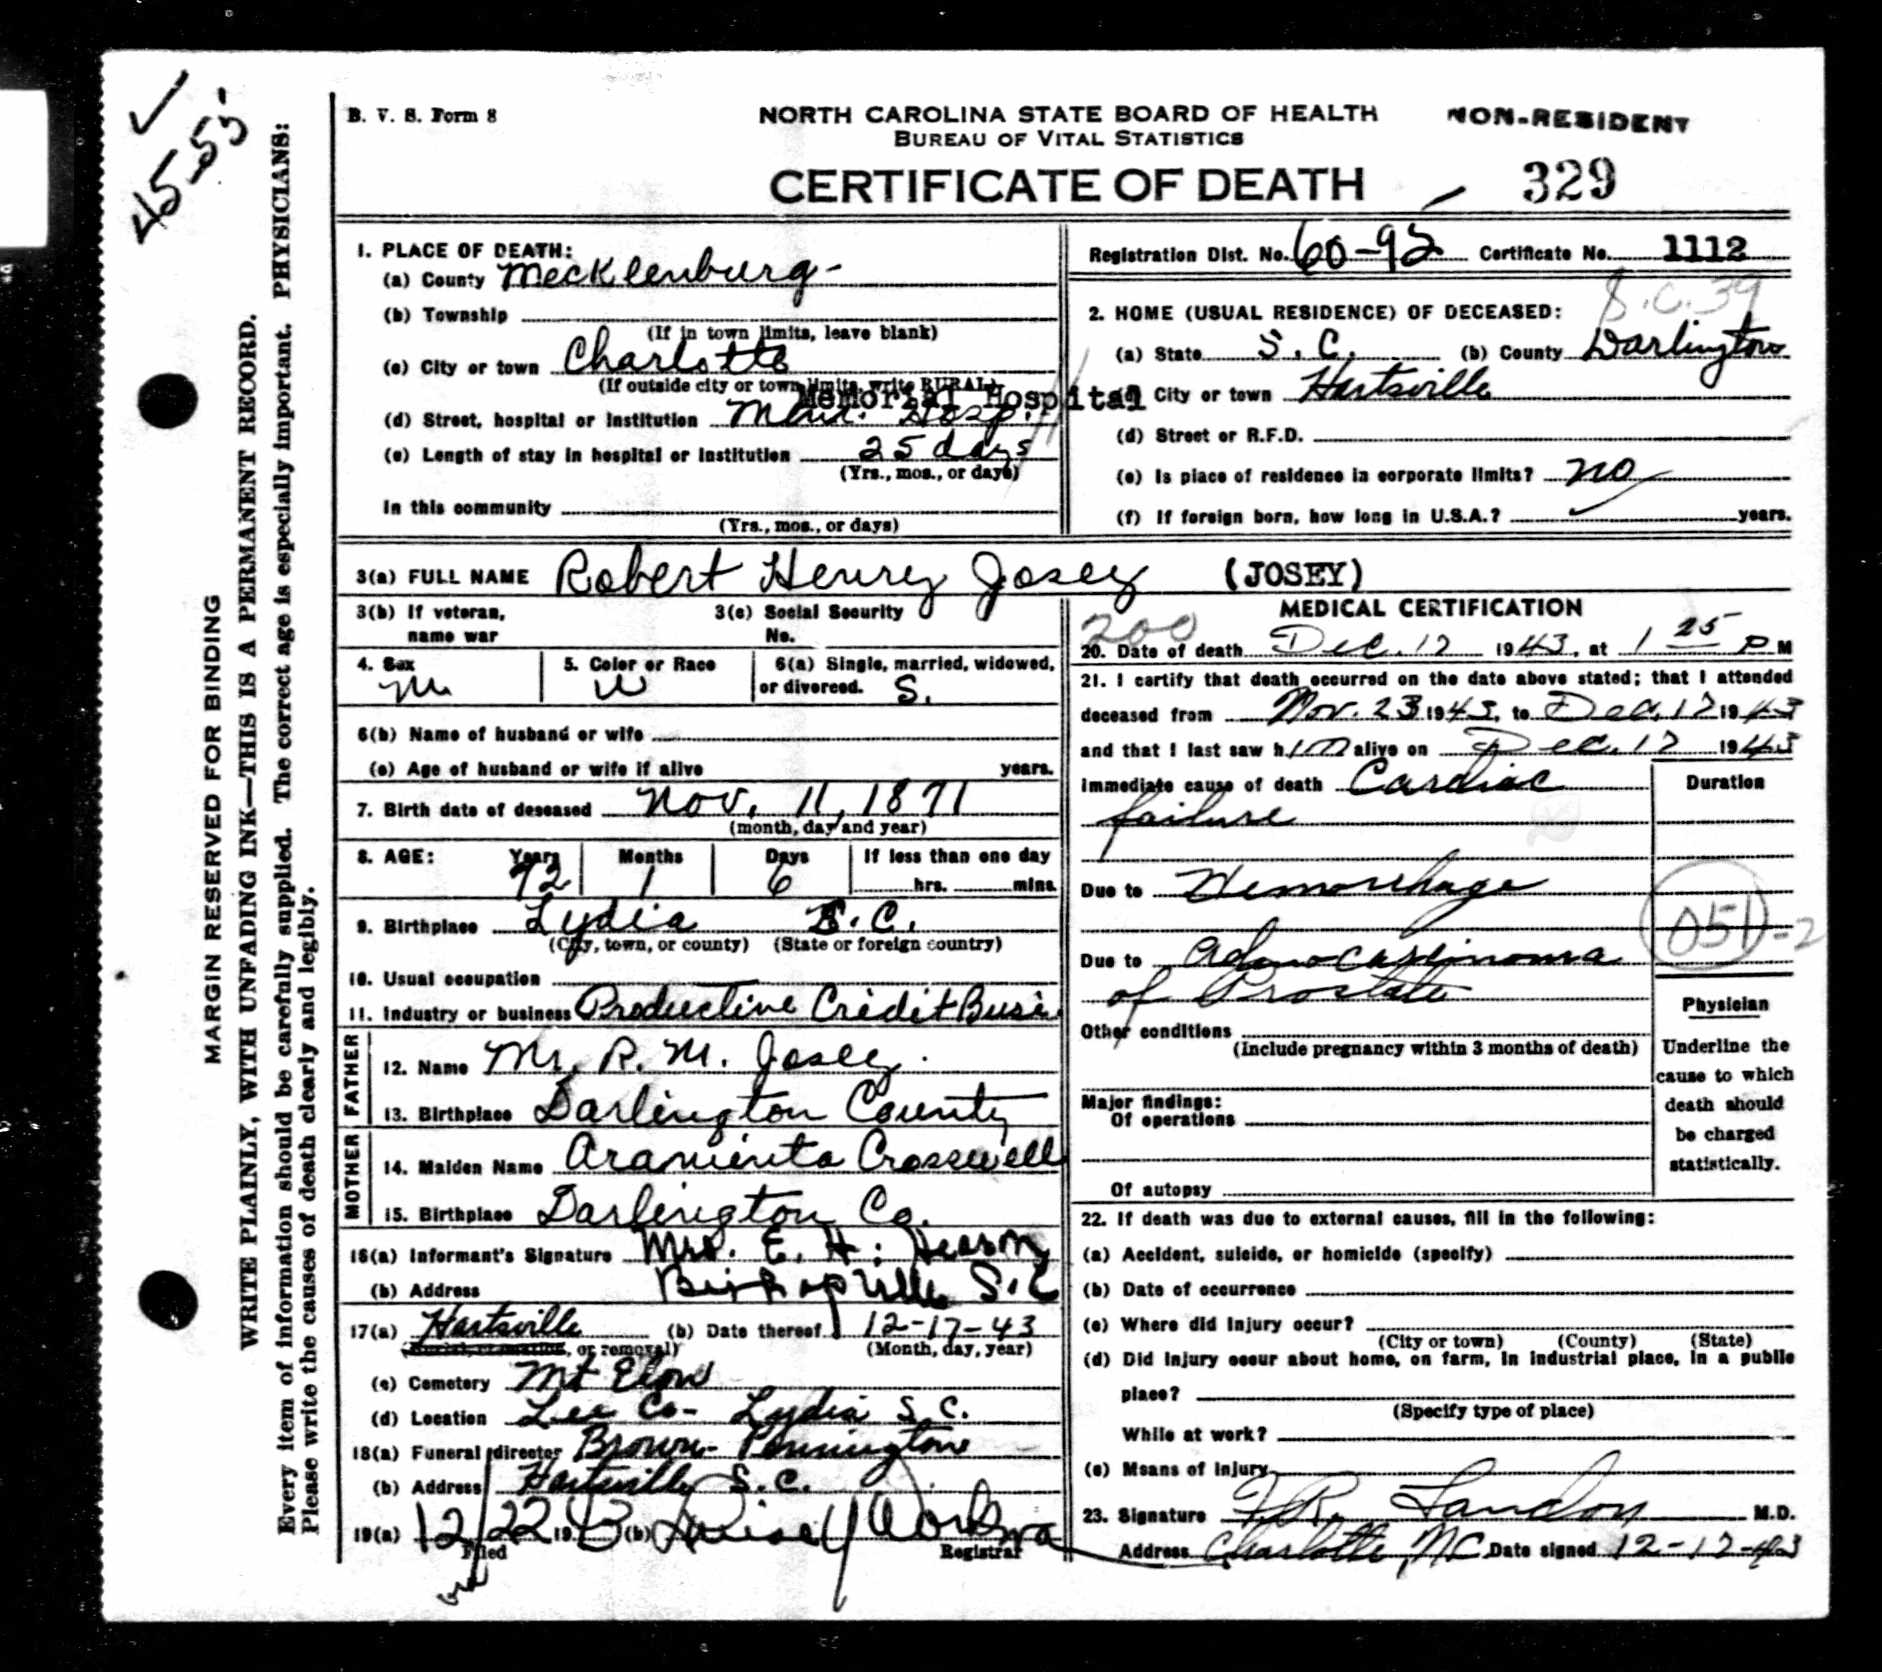 45-55
MARGIN RESERVED FOR BINDING
WRITE PLAINLY, WITH UNFADING INK—THIS IS A PERMANENT RECORD.
Every item of information should be carefully supplied. The correct age is especially important. PHYSICIANS:
Please write the causes of death clearly and legibly.
B. V. S. Form 8
NORTH CAROLINA STATE BOARD OF HEALTH
BUREAU OF VITAL STATISTICS
CERTIFICATE OF DEATH
NON-RESIDENT
329
1. PLACE OF DEATH:
(a) County Mecklenburg-
(b) Township
(If in town limits, leave blank)
(c) City or town Charlotte
(If outside city or town limits, write RURAL)
Memorial Hospital
(d) Street, hospital or institution Mem. Hosp.
(e) Length of stay in hospital or institution 25 days
(Yrs., mos., or days)
In this community
(Yrs., mos., or days)
Registration Dist. No. 60-95 Certificate No. 1112
S.C. 39
2. HOME (USUAL RESIDENCE) OF DECEASED:
(a) State S. C. (b) County Darlington
City or town Hartsville
(d) Street or R.F.D.
(e) Is place of residence in corporate limits? no
(f) If foreign born, how long in U.S.A.? years.
3(a) FULL NAME Robert Henry Josey (JOSEY)
3(b) If veteran, name war
3(c) Social Security No.
4. Sex M
5. Color or Race W
6(a) Single, married, widowed, or divorced. S.
6(b) Name of husband or wife
(c) Age of husband or wife if alive years.
7. Birth date of deseased Nov. 11, 1871
(month, day and year)
8. AGE: Years 72 Months 1 Days 6 If less than one day
hrs. mins.
9. Birthplace Lydia S. C.
(City, town, or county) (State or foreign country)
10. Usual occupation
11. Industry or business Productive Credit Busi.
FATHER
12. Name Mr. R. M. Josey.
13. Birthplace Darlington County
MOTHER
14. Maiden Name Araminta Crosswell
15. Birthplace Darlington Co.
16(a) Informant's Signature Mrs. E. H. Hearon
(b) Address Bishopville S.C
17(a) Hartsville (b) Date thereof 12-17-43
(Burial, cremation, or removal) (Month, day, year)
(c) Cemetery Mt Elon
(d) Location Lee Co- Lydia S. C.
18(a) Funeral director Brown- Pennington
(b) Address Hartsville S. C.
19(a) 12/22 1943 (b) Louise Y Workman
Filed Registrar
MEDICAL CERTIFICATION
200
20. Date of death Dec. 17 1943, at 1 25 P M
21. I certify that death occurred on the date above stated; that I attended
deceased from Nov. 23 1943, to Dec. 17 1943
and that I last saw him alive on Dec. 17 1943
Immediate cause of death Cardiac
failure
Duration
Due to Hemorrhage
051-2
Due to Adenocarcinoma
of Prostate
Other conditions
(Include pregnancy within 3 months of death)
Major findings:
Of operations
Of autopsy
Physician
Underline the
cause to which
death should
be charged
statistically.
22. If death was due to external causes, fill in the following:
(a) Accident, suicide, or homicide (specify)
(b) Date of occurrence
(c) Where did injury occur?
(City or town) (County) (State)
(d) Did injury occur about home, on farm, in industrial place, in a public
place?
(Specify type of place)
While at work?
(e) Means of injury
23. Signature F. R. Landon M.D.
Address Charlotte, NC Date signed 12-17-43